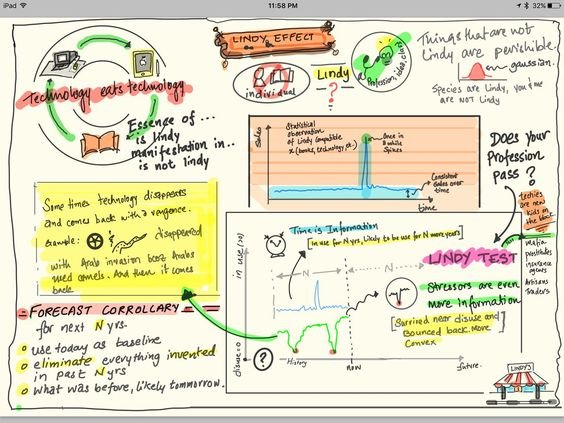 iPad
11:58 PM
32%
LINDY EFFECT
individual
Lindy
?
Profession, idea, class
Things that are not
Lindy are perishible.
gaussian.
Species are Lindy, you & me
are NOT Lindy
Technology eats technology
Essence of ...
is lindy
manifestation in..
is not lindy
sales
Statistical
observation
of Lindy Compatible
x (books, technology etc.)
Once in
a while
Spikes
Consistent
Sales over
time
time
Does your
Profession
pass?
techies
are new
kids on
the block
mafia
prostitutes
insurance
agents
Artisans
Traders
Some times technology disappears
and comes back with a vengence.
example:
disappeared
with Arab invasion becoz Arabs
used camels. And then it comes
back
Time is Information
[in use for N yrs, likely to be use for N more years]
in use (20)
N
N
LINDY TEST
Stressors are even
more information
[Survived near disuse and
Bounced back. More
Convex]
?
History
now
future.
FORECAST CORROLLARY
for next N yrs.
use today as baseline
eliminate everything invented
in past N yrs
what was before, likely tommorrow.
LINDY'S